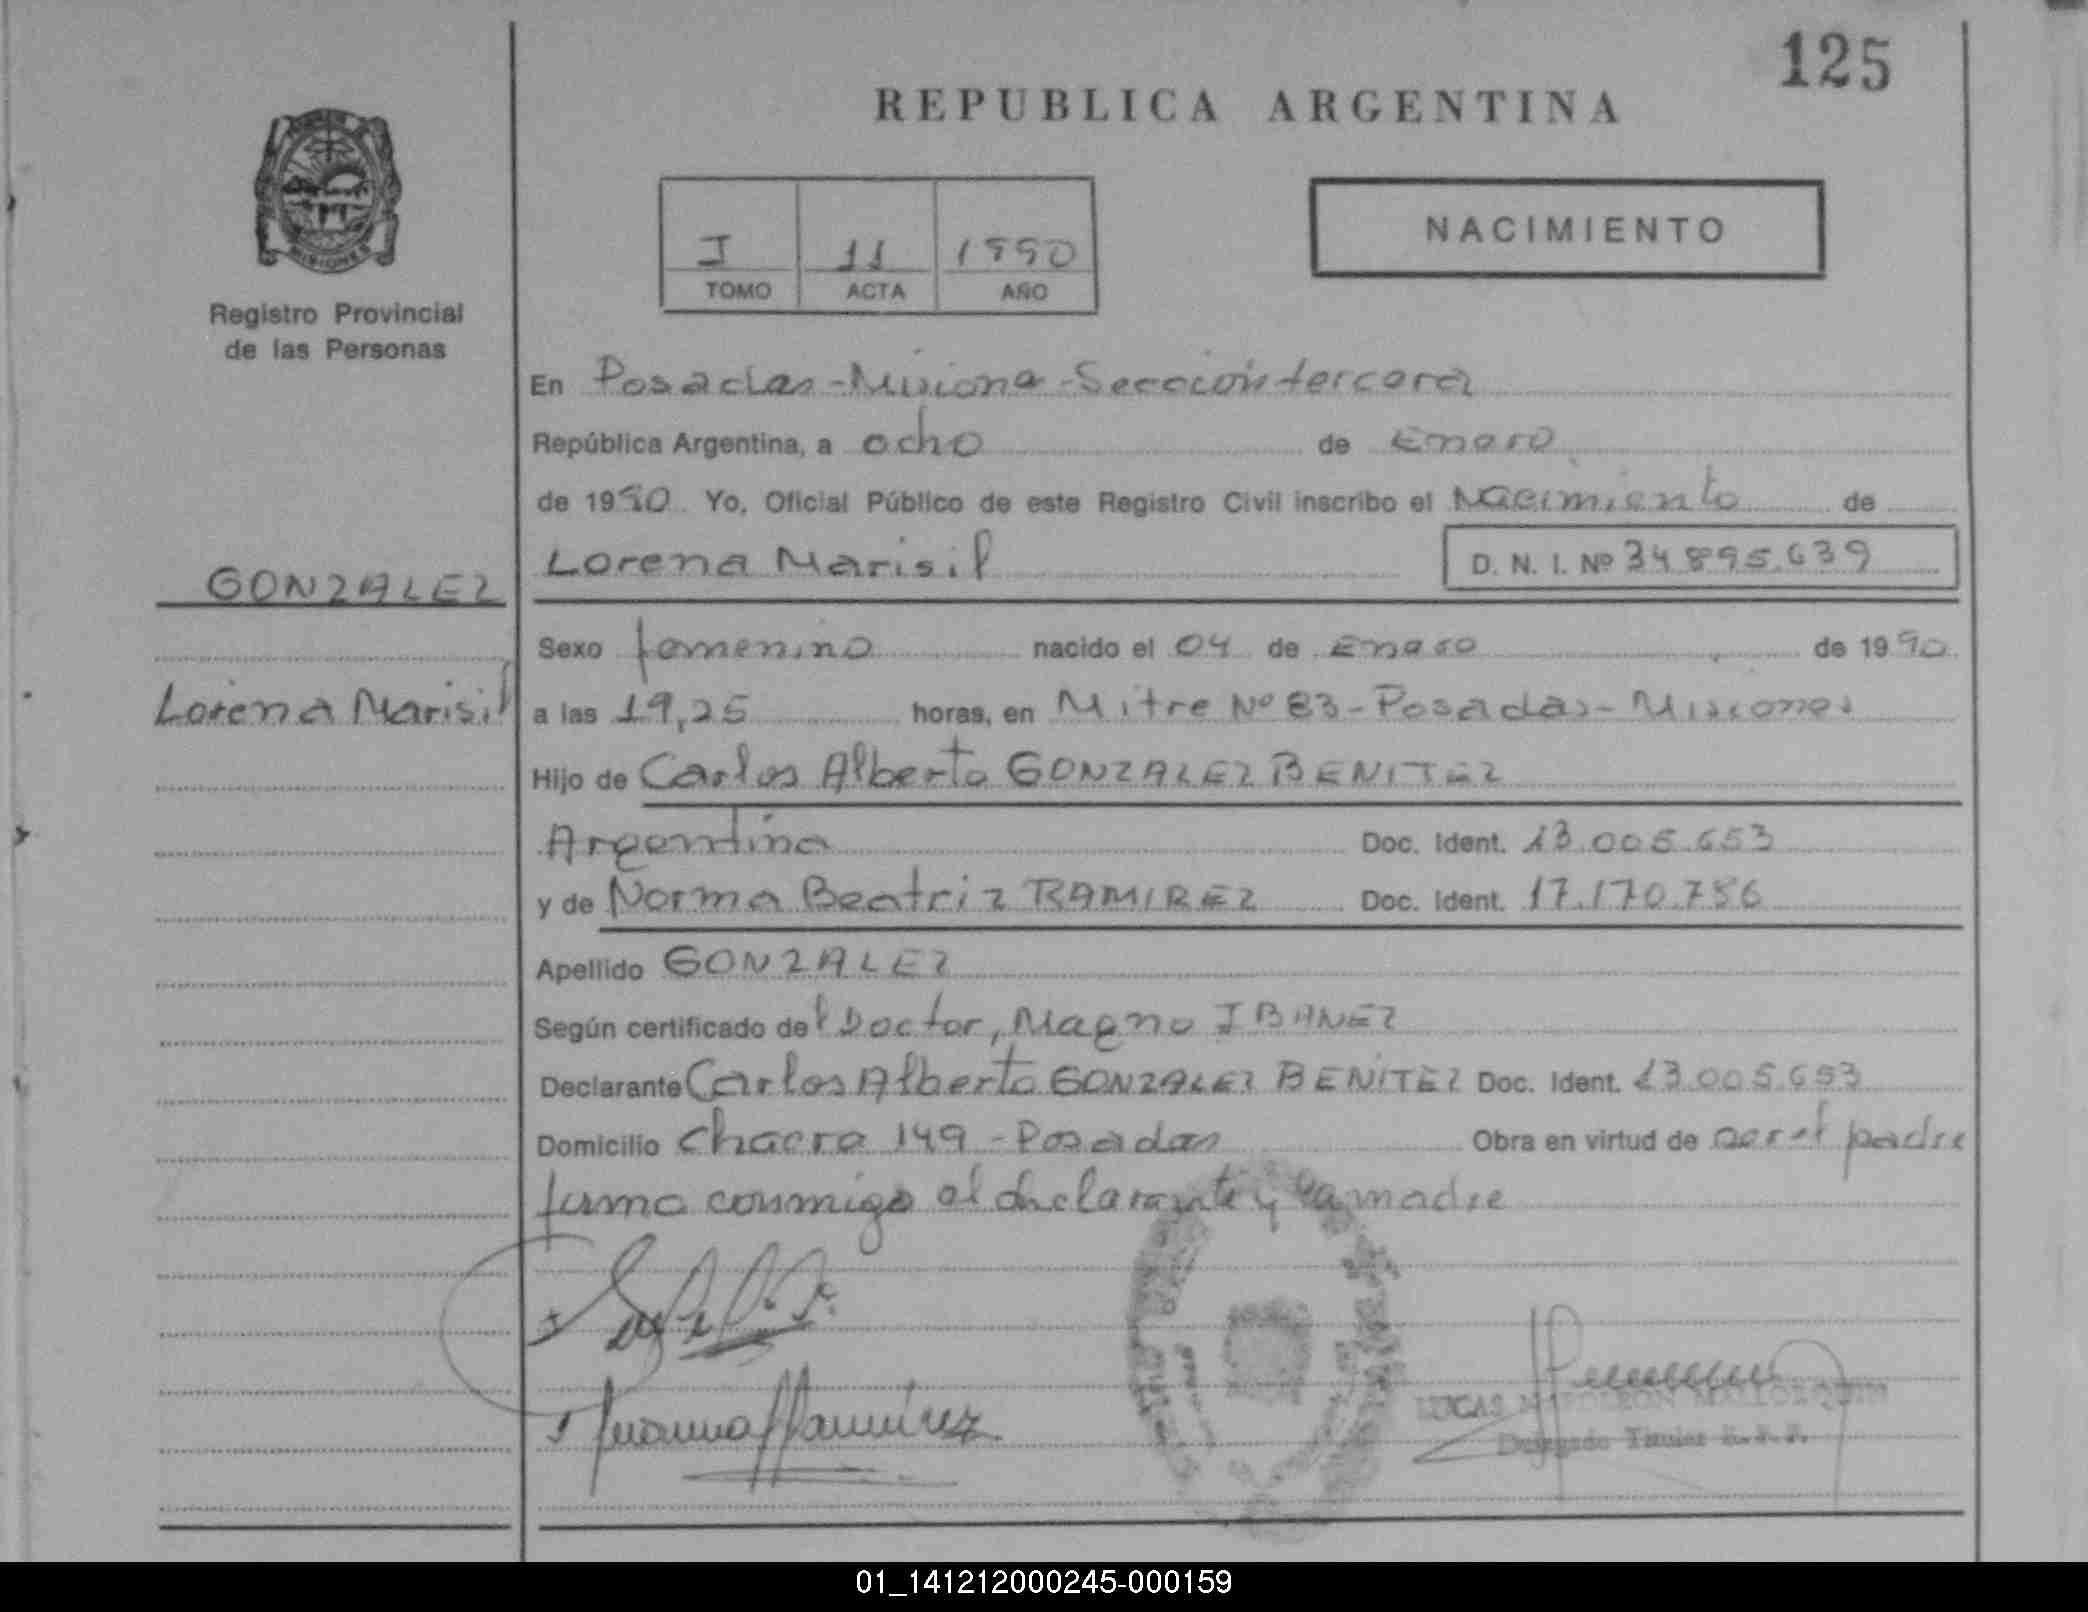 125
REPUBLICA ARGENTINA
MISIONES
Registro Provincial
de las Personas
I 11 1990
TOMO ACTA AÑO
NACIMIENTO
En Posadas-Misiones-Sección tercera
República Argentina, a ocho de Enero
de 1990. Yo, Oficial Público de este Registro Civil inscribo el Nacimiento de
Lorena Marisil D. N. I. Nº 34.895.639
GONZALEZ
Lorena Marisil
Sexo femenino nacido el 04 de Enero de 1990
a las 19,25 horas, en Mitre Nº 83-Posadas-Misiones
Hijo de Carlos Alberto GONZALEZ BENITEZ
Argentina Doc. Ident. 13.005.653
y de Norma Beatriz RAMIREZ Doc. Ident. 17.170.786
Apellido GONZALEZ
Según certificado del Doctor, Magno IBANEZ
Declarante Carlos Alberto GONZALEZ BENITEZ Doc. Ident. 13.005.653
Domicilio Chacra 149-Posadas Obra en virtud de ser el padre
firma conmigo el declarante y la madre
Ramirez
LUCAS NAPOLEON MALLORQUIN
Delegado Titular R.P.P.
01_141212000245-000159